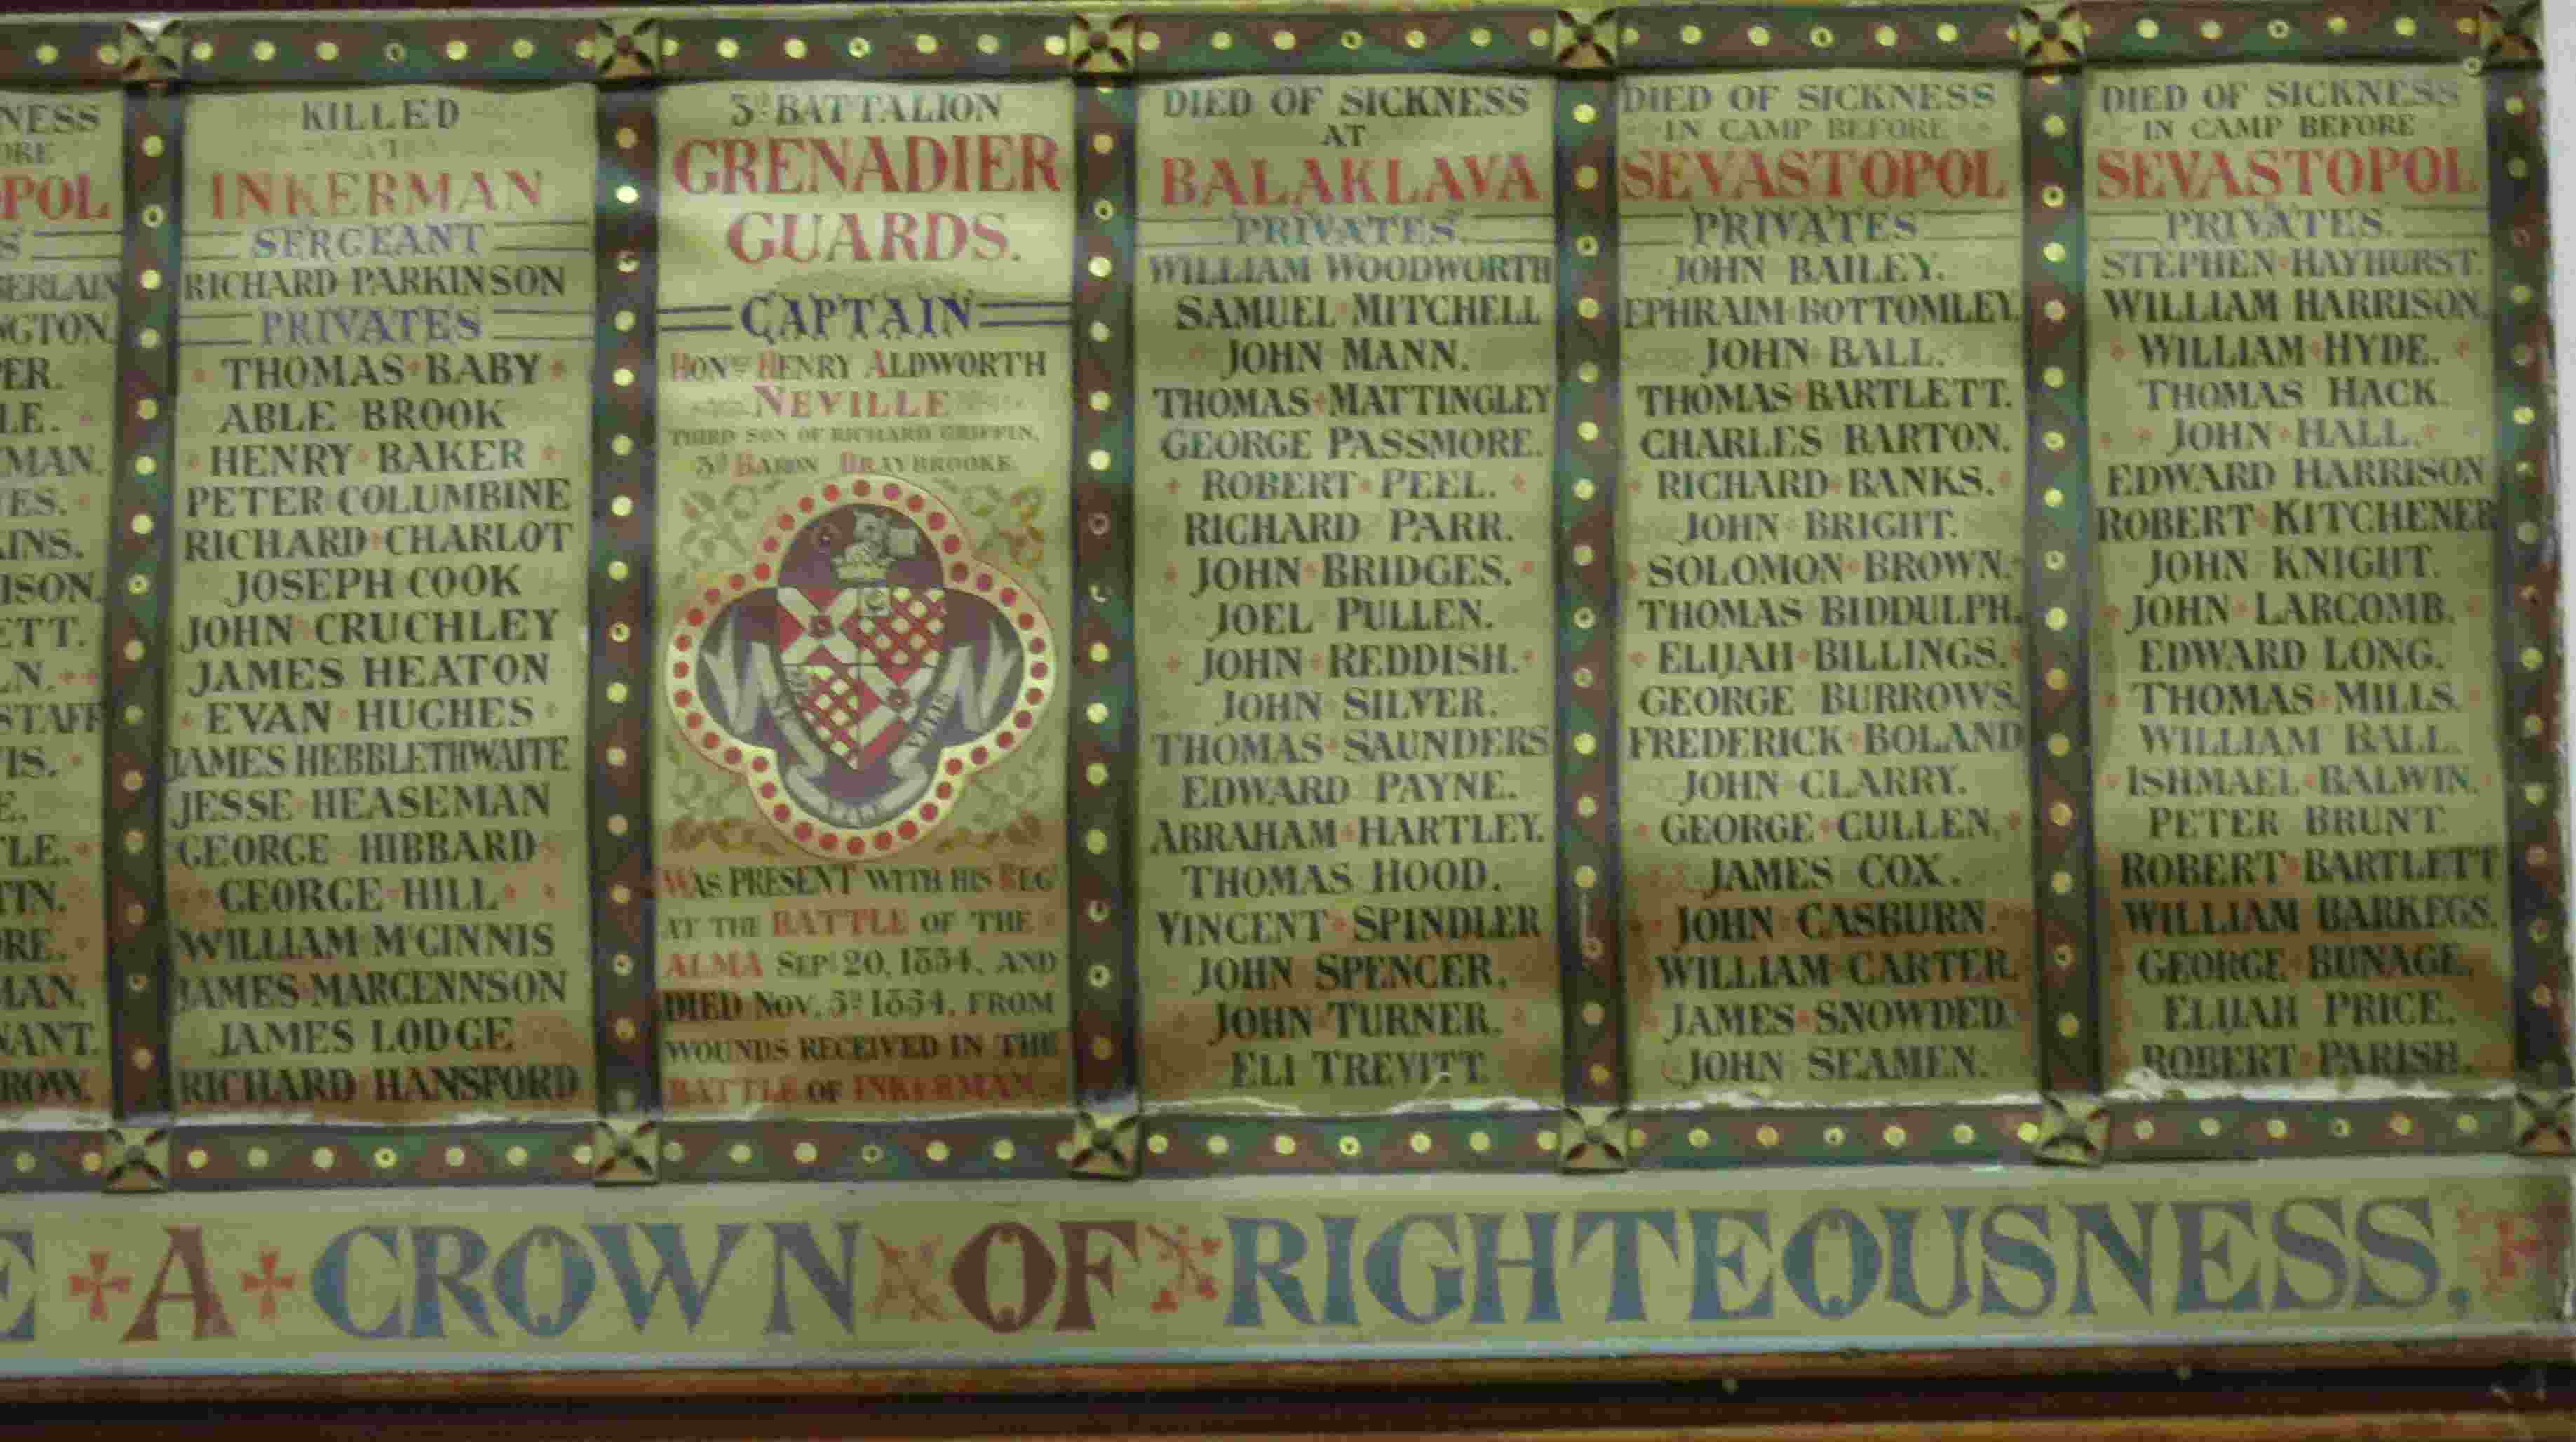 NESS
ORE
OPOL
S
BERLAIN
NGTON.
PER.
LE.
MAN.
ES.
INS.
ISON.
ETT.
LN.
STAFF
IS.
E.
TLE.
TIN.
ORE.
MAN.
NANT.
ROW.
KILLED
AT
INKERMAN
SERGEANT
RICHARD PARKINSON
PRIVATES
THOMAS BABY
ABLE BROOK
HENRY BAKER
PETER COLUMBINE
RICHARD CHARLOT
JOSEPH COOK
JOHN CRUCHLEY
JAMES HEATON
EVAN HUGHES
JAMES HEBBLETHWAITE
JESSE HEASEMAN
GEORGE HIBBARD
GEORGE HILL
WILLIAM McGINNIS
JAMES MARCENNSON
JAMES LODGE
RICHARD HANSFORD
3D BATTALION
GRENADIER
GUARDS.
CAPTAIN
HONBLE HENRY ALDWORTH
NEVILLE
THIRD SON OF RICHARD GRIFFIN,
3D BARON BRAYBROOKE.
NE VILE
VELIS
WAS PRESENT WITH HIS REG
AT THE BATTLE OF THE
ALMA SEP 20, 1854, AND
DIED NOV. 5D 1854, FROM
WOUNDS RECEIVED IN THE
BATTLE OF INKERMAN.
DIED OF SICKNESS
AT
BALAKLAVA
PRIVATES.
WILLIAM WOODWORTH
SAMUEL MITCHELL
JOHN MANN.
THOMAS MATTINGLEY
GEORGE PASSMORE.
ROBERT PEEL.
RICHARD PARR.
JOHN BRIDGES.
JOEL PULLEN.
JOHN REDDISH.
JOHN SILVER.
THOMAS SAUNDERS
EDWARD PAYNE.
ABRAHAM HARTLEY.
THOMAS HOOD.
VINCENT SPINDLER
JOHN SPENCER.
JOHN TURNER.
ELI TREVITT.
DIED OF SICKNESS
IN CAMP BEFORE
SEVASTOPOL
PRIVATES
JOHN BAILEY.
EPHRAIM BOTTOMLEY.
JOHN BALL.
THOMAS BARTLETT.
CHARLES BARTON.
RICHARD BANKS.
JOHN BRIGHT.
SOLOMON BROWN.
THOMAS BIDDULPH.
ELIJAH BILLINGS.
GEORGE BURROWS.
FREDERICK BOLAND
JOHN CLARRY.
GEORGE CULLEN.
JAMES COX.
JOHN CASBURN.
WILLIAM CARTER.
JAMES SNOWDED.
JOHN SEAMEN.
DIED OF SICKNESS
IN CAMP BEFORE
SEVASTOPOL
PRIVATES.
STEPHEN HAYHURST.
WILLIAM HARRISON.
WILLIAM HYDE.
THOMAS HACK.
JOHN HALL.
EDWARD HARRISON
ROBERT KITCHENER
JOHN KNIGHT.
JOHN LARCOMB.
EDWARD LONG.
THOMAS MILLS.
WILLIAM BALL.
ISHMAEL BALWIN.
PETER BRUNT.
ROBERT BARTLETT
WILLIAM BARKEGS.
GEORGE BUNAGE.
ELIJAH PRICE.
ROBERT PARISH.
E A CROWN OF RIGHTEOUSNESS.